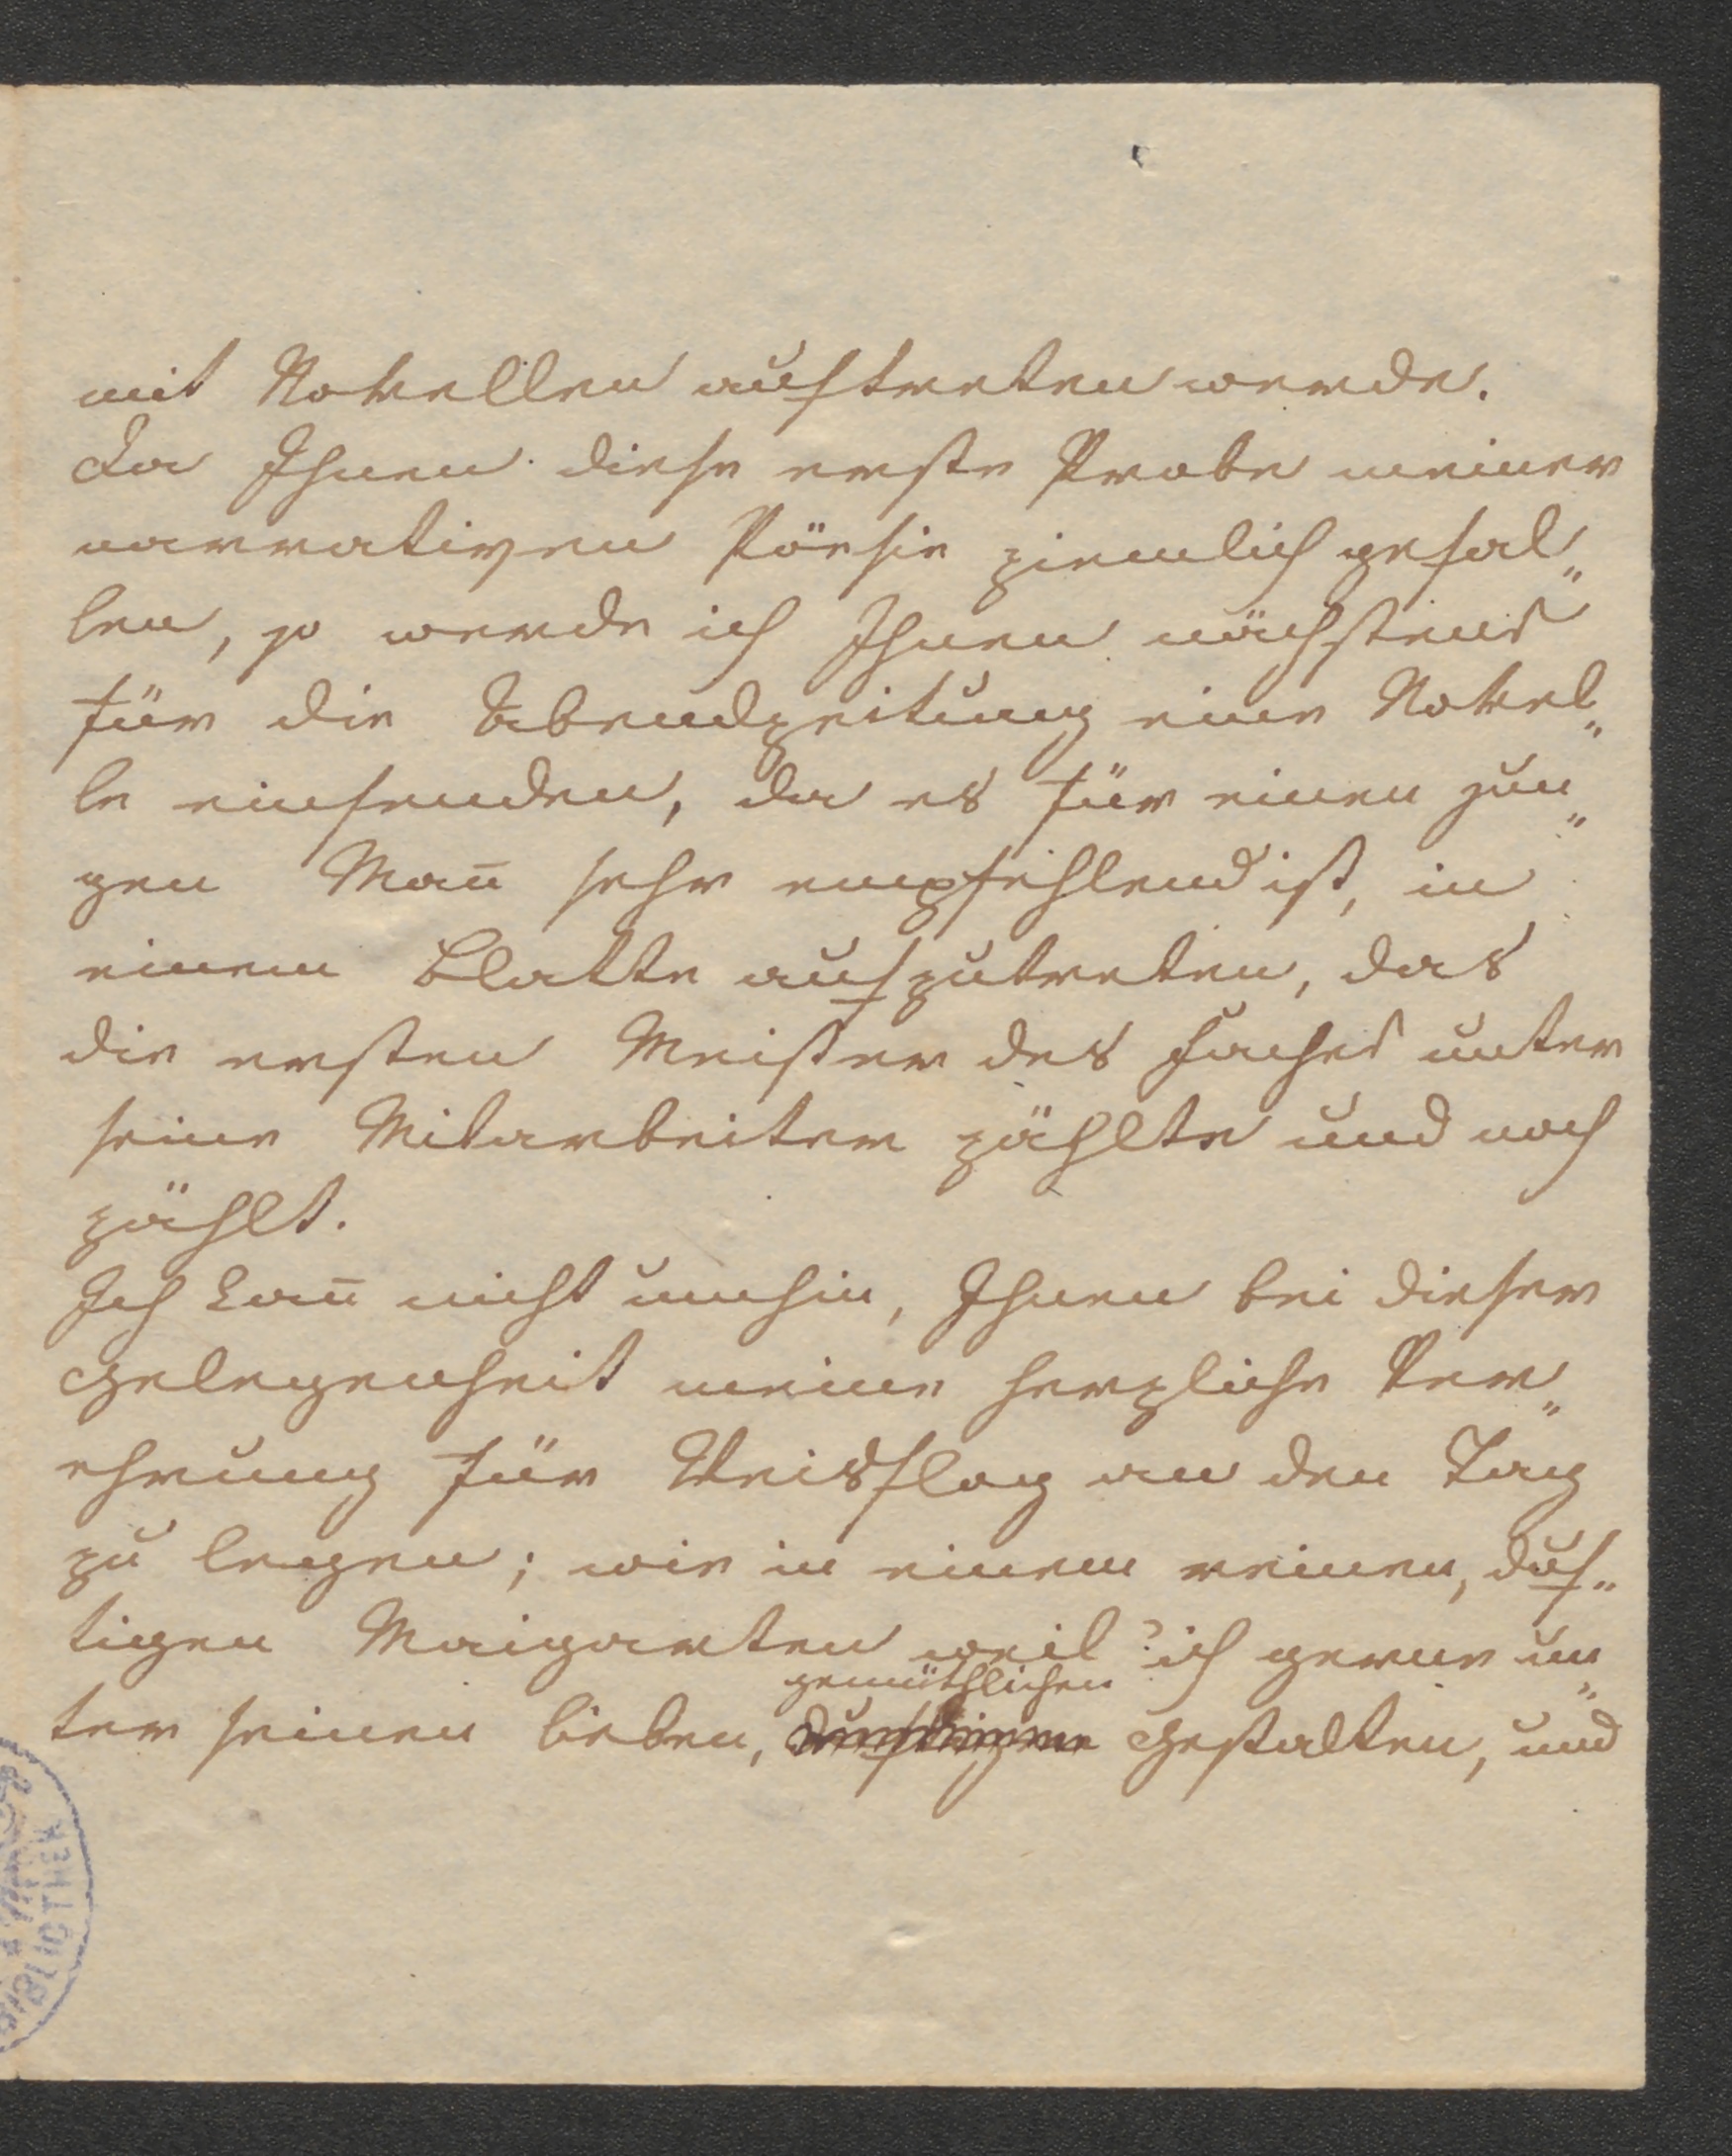 mit Novellen auftreten werde.
Da Ihnen diese erste Probe meiner
narrativen Pöesie ziemlich gefal„
len, so werde ich Ihnen nächstens
für die Abendzeitung eine Novel„
le einsenden, da es für einen jun„
gen Man̄ sehr empfehlend ist, in
einem Blatte aufzutreten, das
die ersten Meister des Faches unter
seine Mitarbeiter zählte und noch
zählt.
Ich kan̄ nicht umhin, Ihnen bei dieser
Gelegenheit meine herzliche Ver„
ehrung für Weisflog an den Tag
zu legen; wie in einem reinen, duf„
tigen Maigarten weil' ich gerne un„
gemüthlichen
ter seinen lieben, Gestalten, und
BIBLIOTHEK